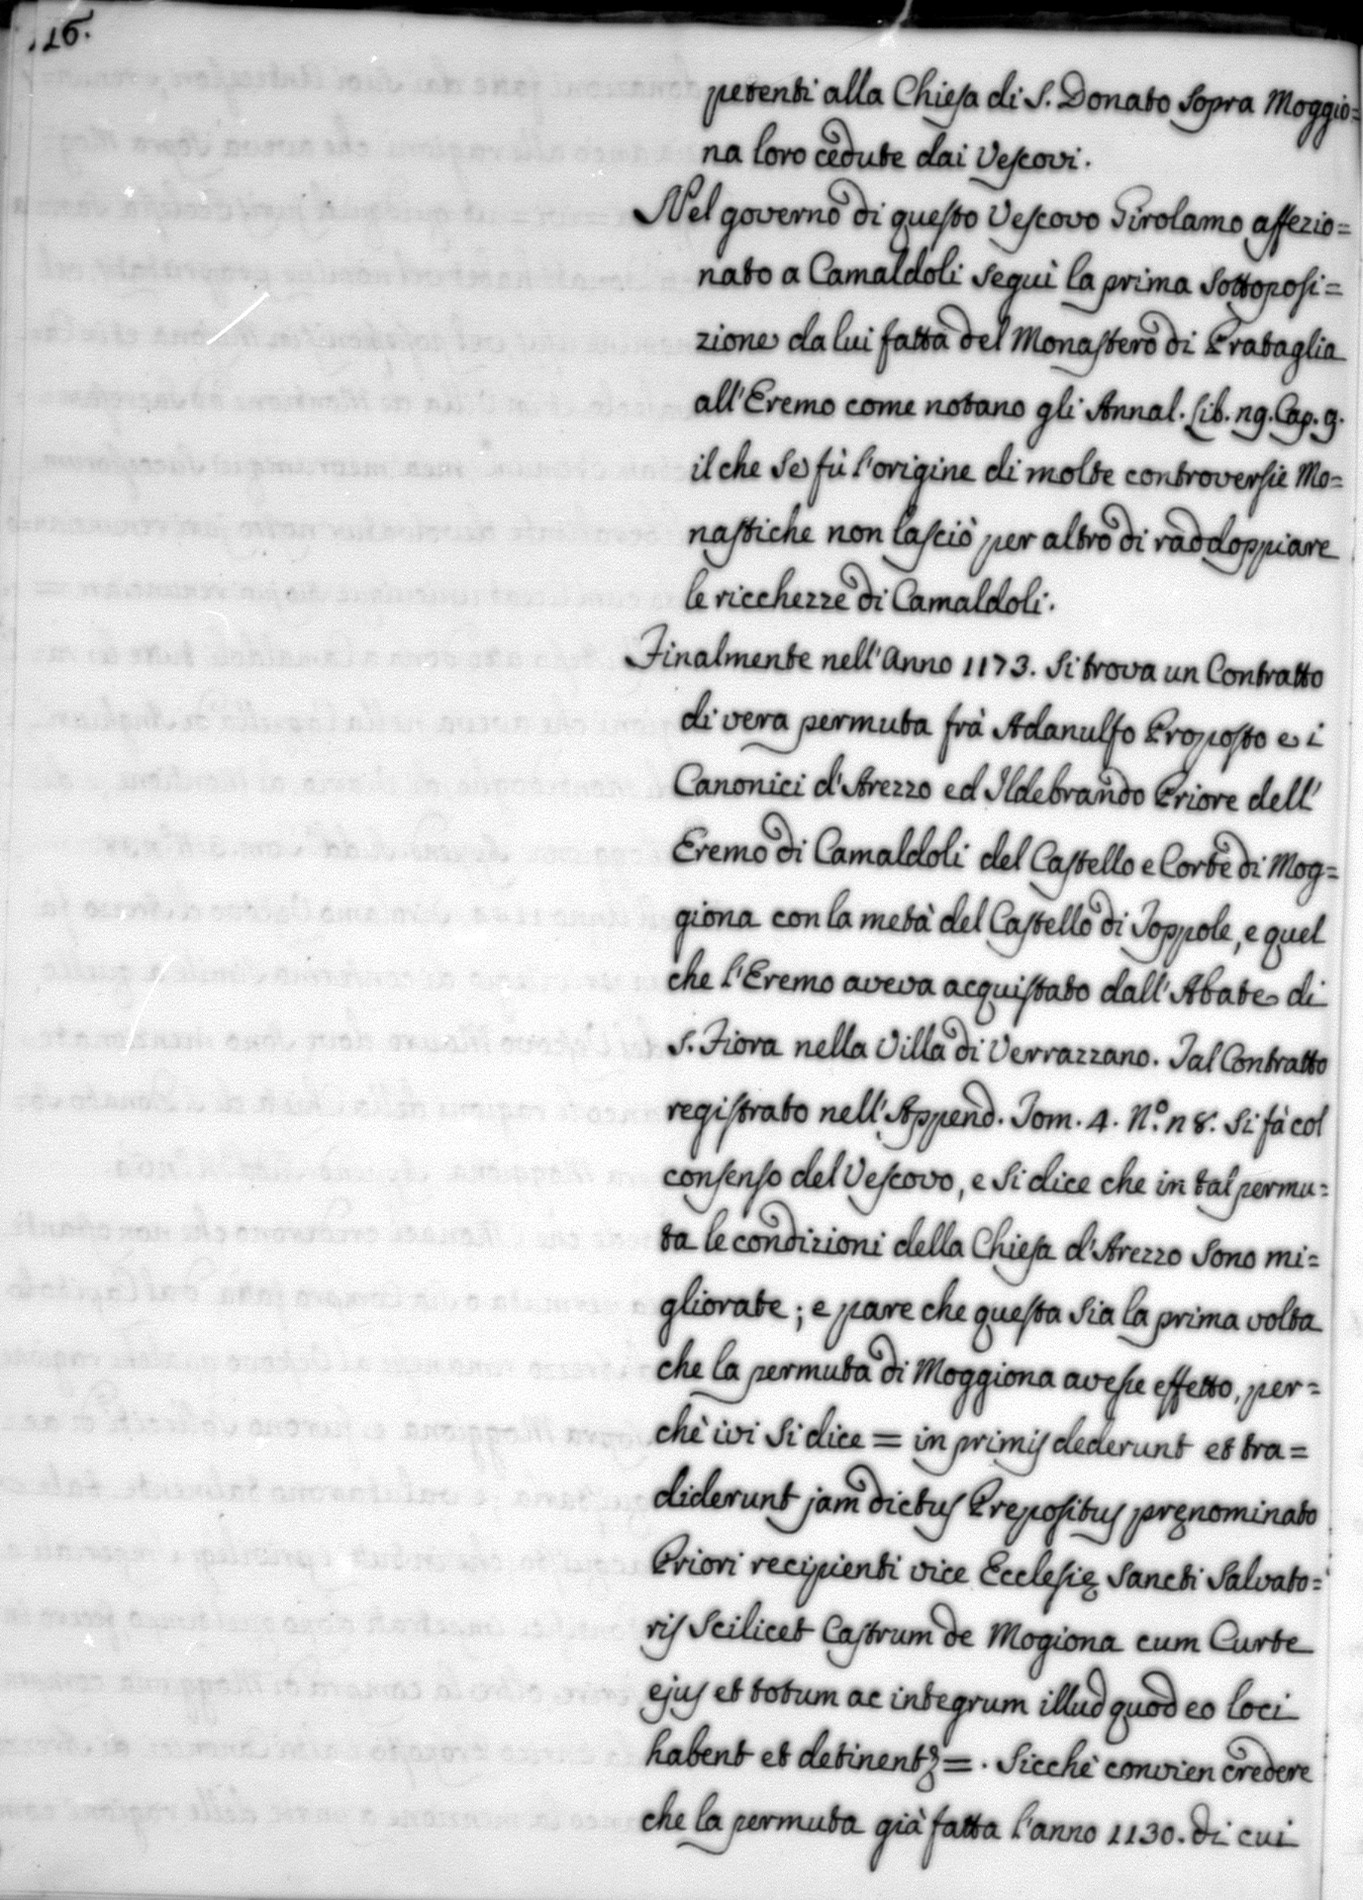 16.
petenti alla Chiesa di S. Donato sopra Moggio=
na loro cedute dai Vescovi.
Nel governo di questo Vescovo Girolamo affezio=
nato a Camaldoli seguì la prima sottoposi=
zione da lui fatta del Monastero di Prataglia
all'Eremo come notano gli Annal. Lib. ng. Cap. 9.
il che se fù l'origine di molte controversie Mo=
nastiche non lasciò per altro di raddoppiare
le ricchezze di Camaldoli.
Finalmente nell'Anno 1173. si trova un Contratto
di vera permuta frà Adanulfo Proposto e i
Canonici d'Arezzo ed Ildebrando Priore dell'
Eremo di Camaldoli del Castello e Corte di Mog=
giona con la metà del Castello di Toppole, e quel
che l'Eremo aveva acquistato dall'Abate di
S. Fiora nella Villa di Verrazzano. Tal Contratto
registrato nell'Append. Tom. 4. N.º n 8. si fà col
consenso del Vescovo, e si dice che in tal permu=
ta le condizioni della Chiesa d'Arezzo sono mi=
gliorate; e pare che questa sia la prima volta
che la permuta di Moggiona avesse effetto, per=
chè ivi si dice = in primis dederunt et tra=
diderunt jam dictus Prepositus pręnominato
Priori recipienti vice Ecclesię Sancti Salvato=
ris scilicet Castrum de Mogiona cum Curte
ejus et totum ac integrum illud quod eo loci
habent et detinent =. Sicchè convien credere
che la permuta già fatta l'anno 1130. di cui